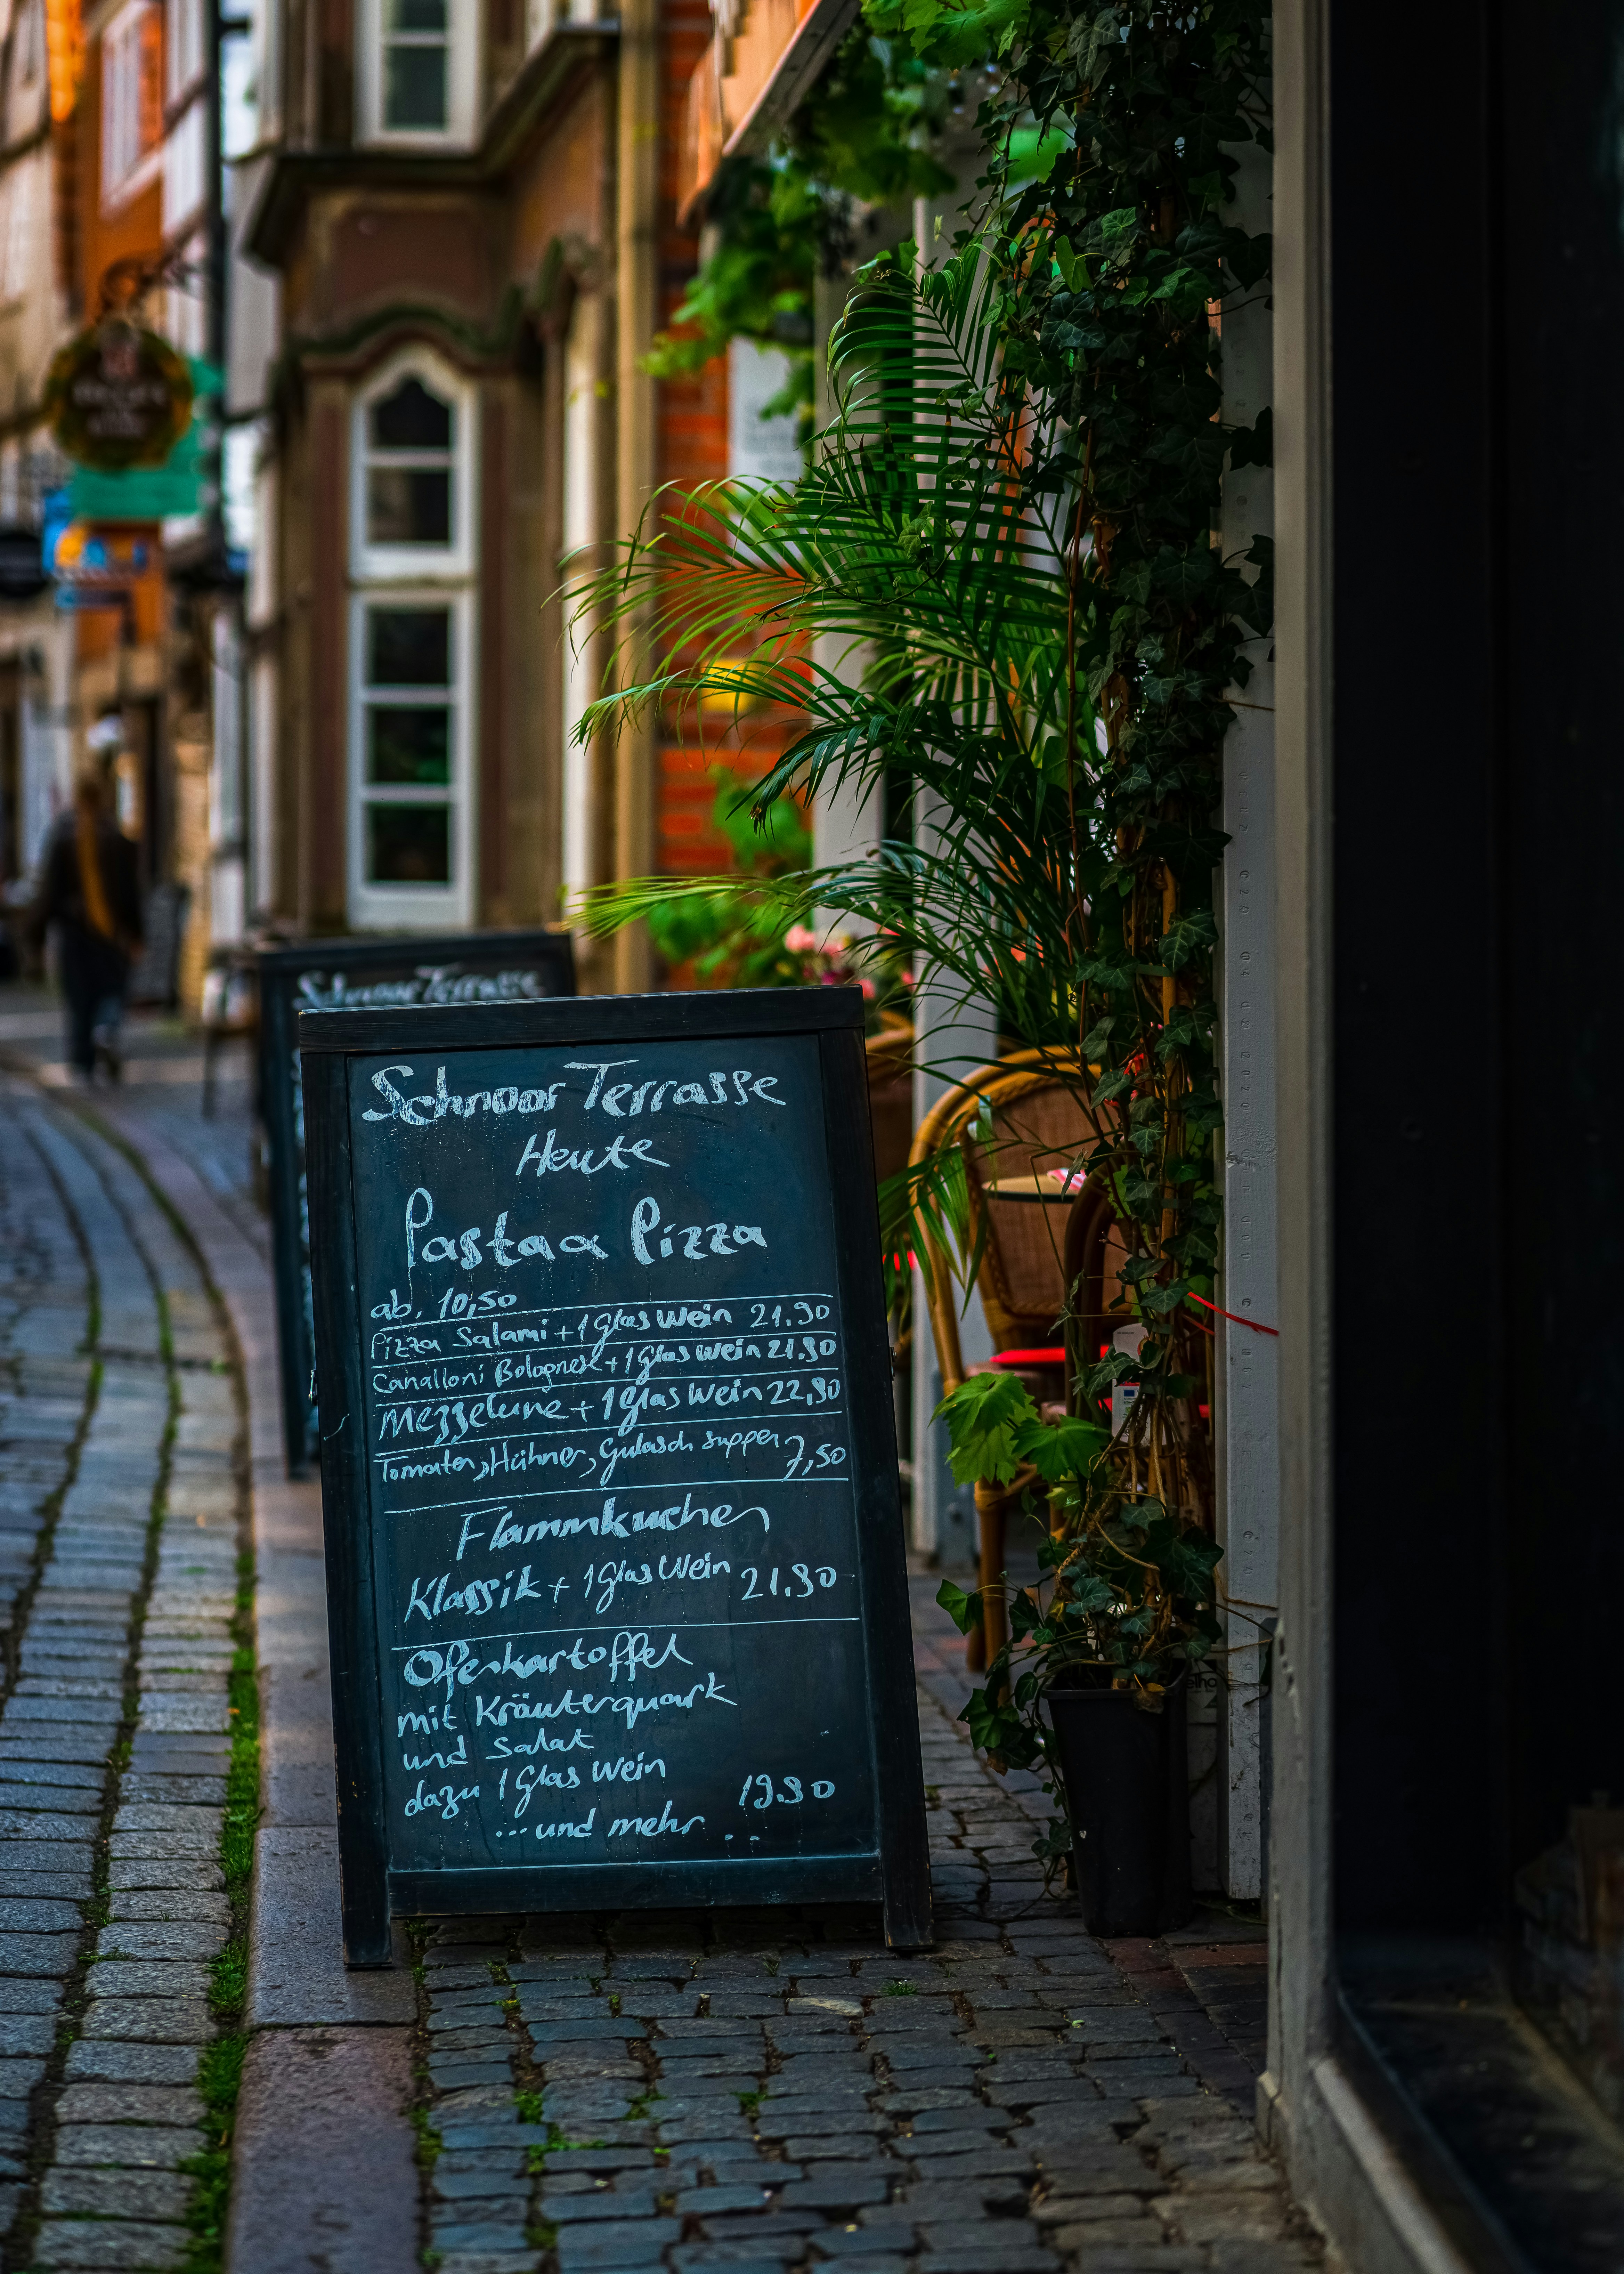 Schnoor Terrasse
Schnoor Terrasse
Heute
Pasta & Pizza
ab. 10,50
Pizza Salami + 1 Glas Wein 21.90
Canalloni Bolognese + 1 Glas Wein 21.90
Mezzelune + 1 Glas Wein 22,90
Tomaten, Hühner, Gulasch suppen 7,50
Flammkuchen
Klassik + 1 Glas Wein 21.90
Ofenkartoffel
mit Kräuterquark
und Salat
dazu 1 Glas Wein
19.90
... und mehr ..